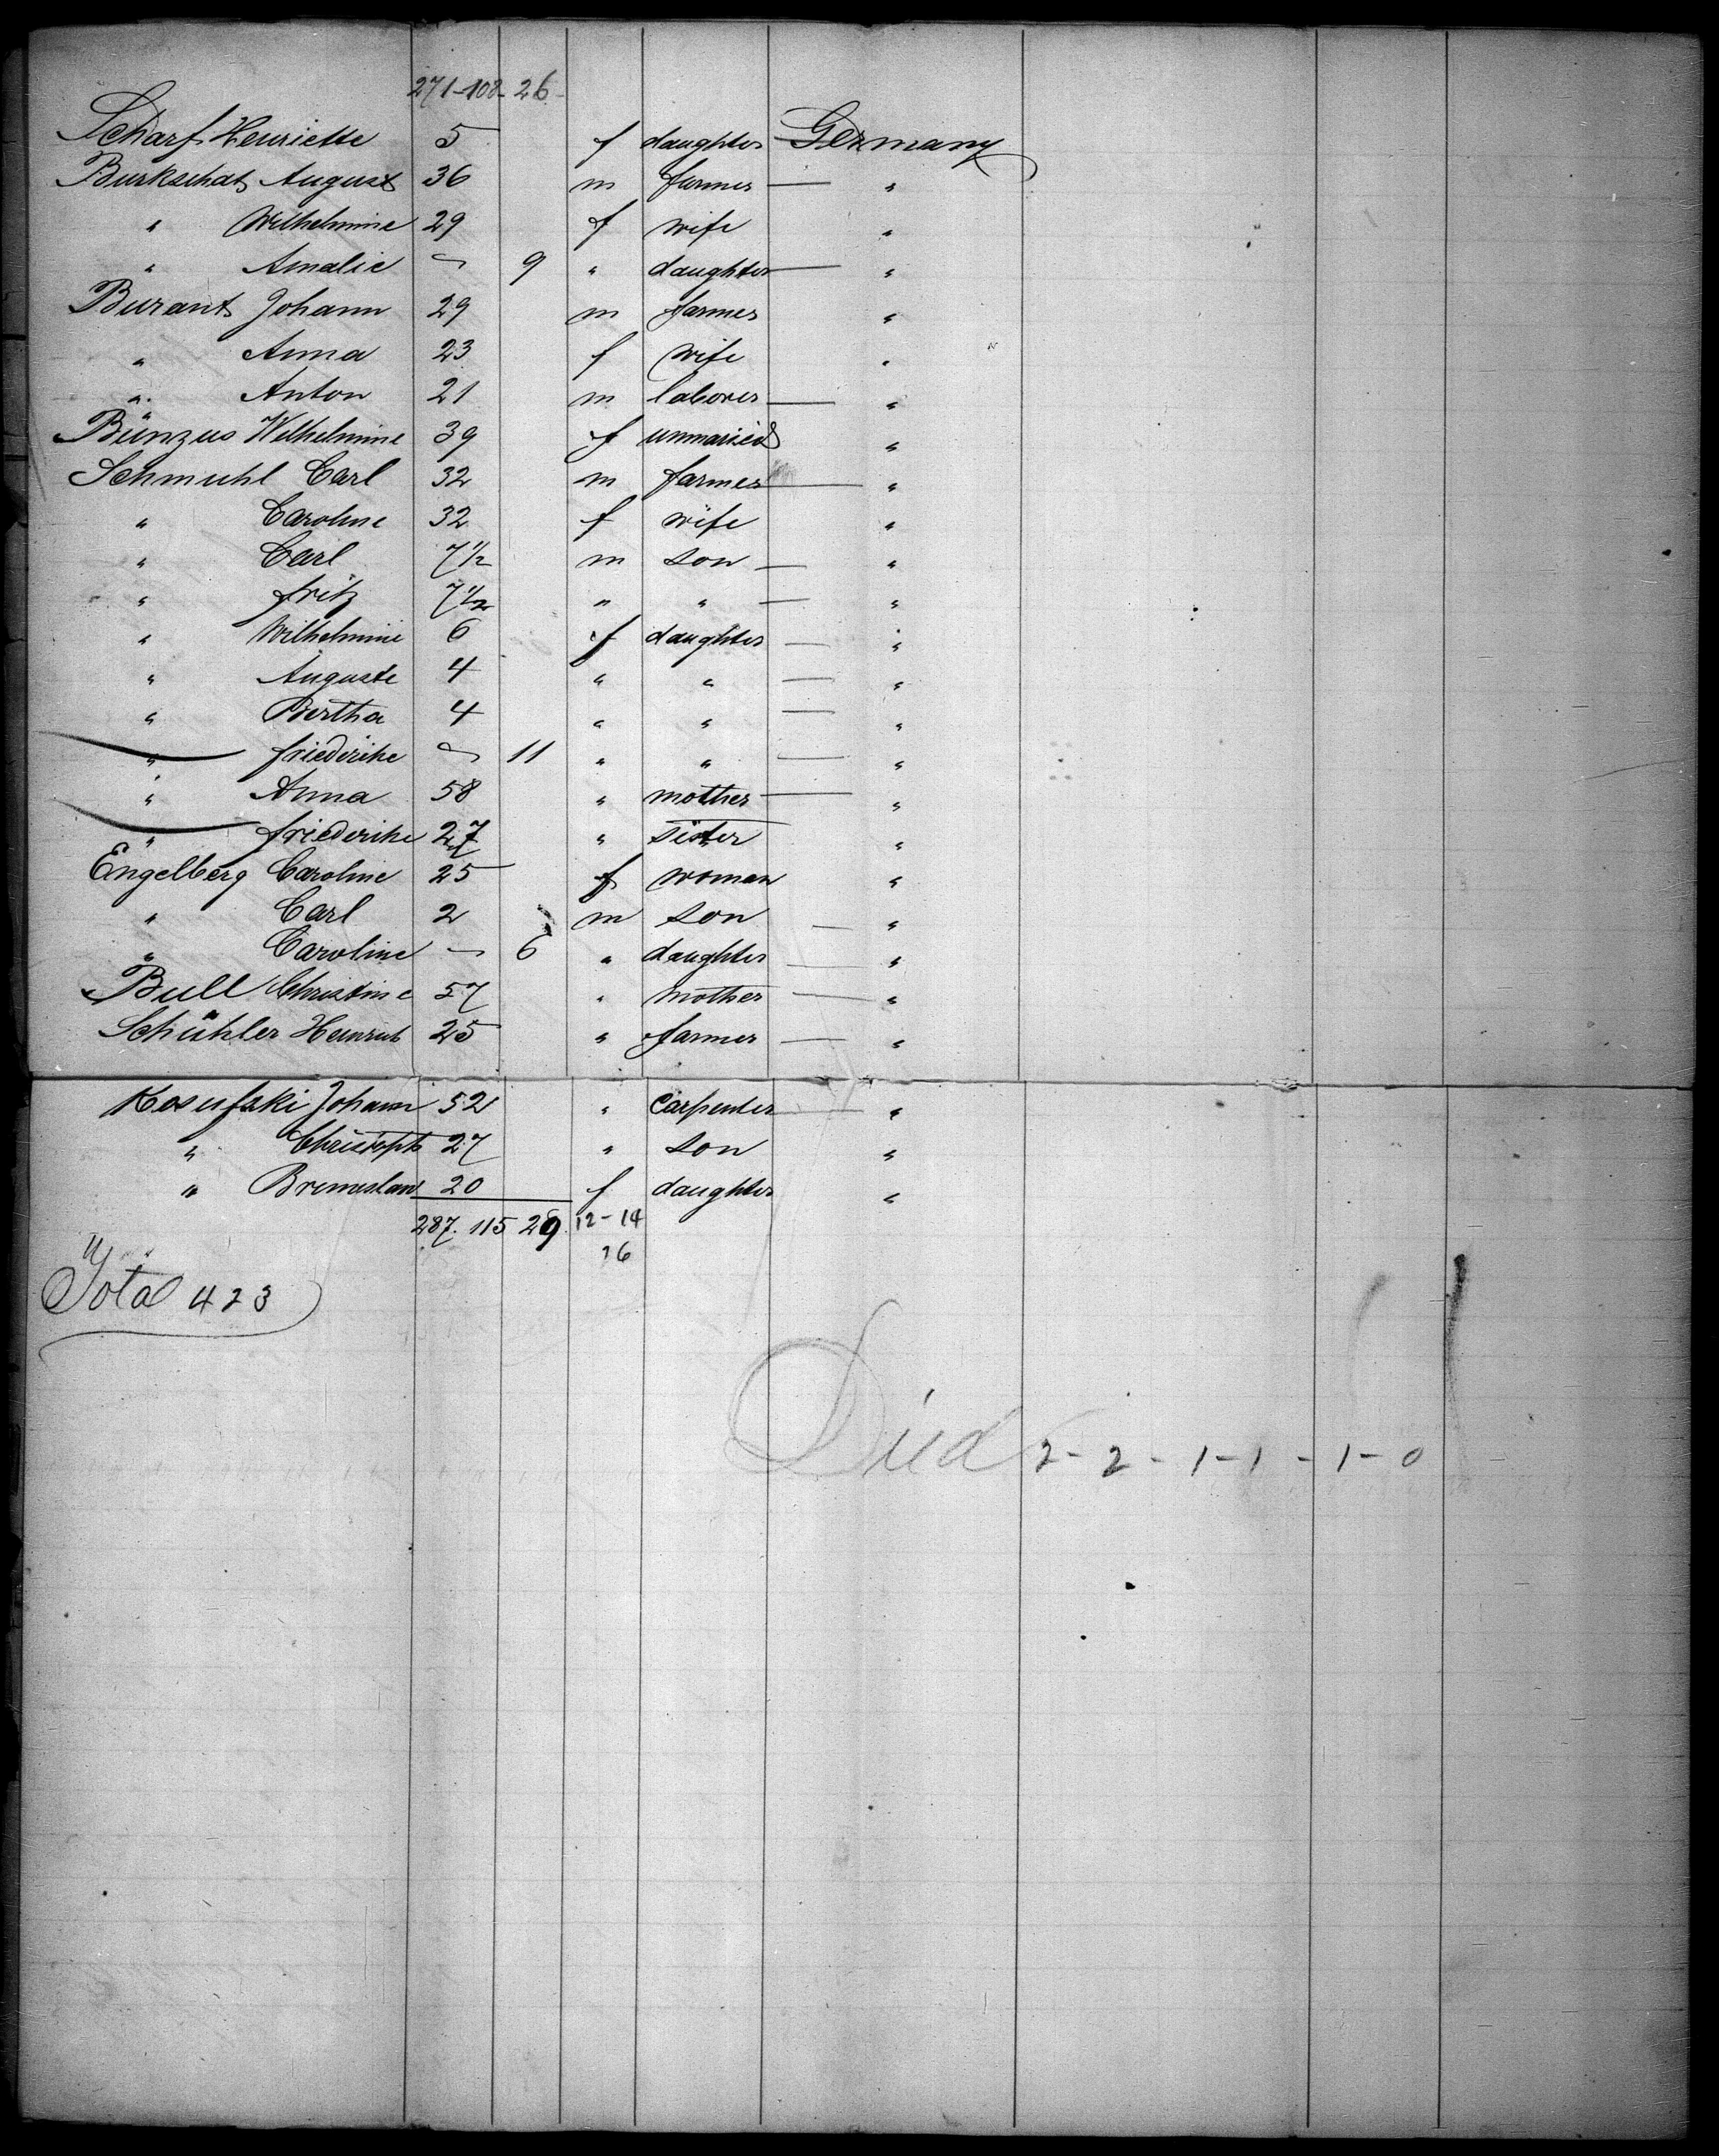 271-108-26-
Scharf Henriette 5 f daughter Germany
Burkschat August 36 m farmer — "
" Wilhelmine 29 f wife "
" Amalie — 9 " daughter — "
Burant Johann 29 m farmer "
" Anna 23 f wife "
" Anton 21 m laborer — "
Bünzus Wilhelmine 39 f unmaried "
Schmuhl Carl 32 m farmer — "
" Caroline 32 f wife "
" Carl 7 1/2 m son — "
" Fritz 7 1/2 " " — "
" Wilhelmine 6 f daughter — "
" Auguste 4 " " — "
" Bertha 4 " " — "
" Friederike — 11 " " — "
" Anna 58 " mother — "
" Friederike 27 " sister "
Engelberg Caroline 25 f woman "
" Carl 2 m son — "
" Caroline — 6 " daughter — "
Bull Christine 57 " mother — "
Schühler Heinrich 25 " farmer — "
Johann 52 " Carpenter — "
" Christoph 27 " son "
" 20 f daughter "
287. 115 29. 12-14
Total 423
Died 2-2-1-1-1-0